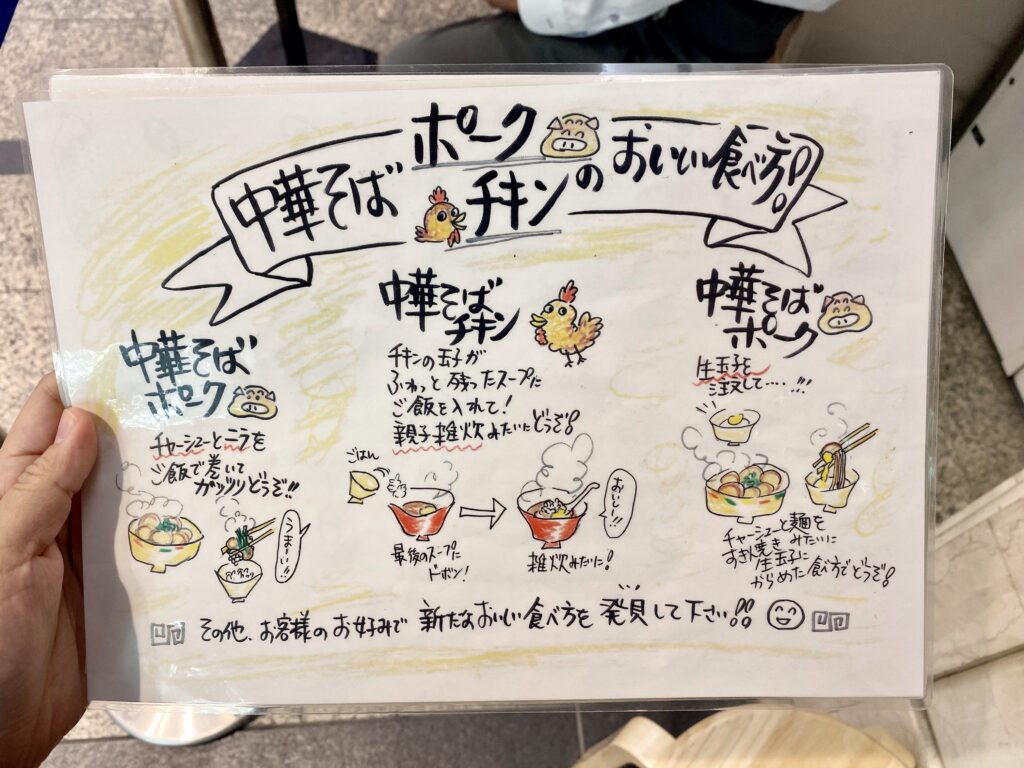 中華そば
ポーク
チキン
のおいしい食べ方!!
中華そば
ポーク
チャーシューとニラを
ご飯で巻いて
ガッツリどうぞ!!
うまーい!!
中華そば
チキン
チキンの玉子が
ふわっと残ったスープに
ご飯を入れて!
親子雑炊みたいにどうぞ!
ごはん
最後のスープに
ドボン!
おいしー!!
雑炊みたいに!
中華そば
ポーク
生玉子を
注文して....!!!
チャーシューと麺を
すき焼きみたいに
生玉子に
からめた食べ方でどうぞ!
その他、お客様のお好みで新たなおいしい食べ方を発見して下さい!!